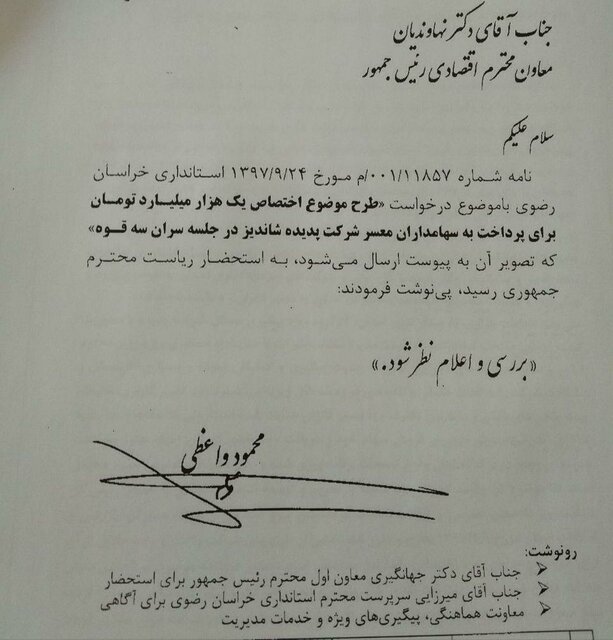 جناب آقای دکتر نهاوندیان
معاون محترم اقتصادی رئیس جمهور
سلام علیکم
نامه شماره ۰۰۱/۱۱۸۵۷/م مورخ ۱۳۹۷/۹/۲۴ استانداری خراسان
رضوی باموضوع درخواست «طرح موضوع اختصاص یک هزار میلیارد تومان
برای پرداخت به سهامداران معسر شرکت پدیده شاندیز در جلسه سران سه قوه»
که تصویر آن به پیوست ارسال می‌شود، به استحضار ریاست محترم
جمهوری رسید، پی‌نوشت فرمودند:
«بررسی و اعلام نظر شود.»
محمود واعظی
رونوشت:
جناب آقای دکتر جهانگیری معاون اول محترم رئیس جمهور برای استحضار
جناب آقای میرزایی سرپرست محترم استانداری خراسان رضوی برای آگاهی
معاونت هماهنگی، پیگیری‌های ویژه و خدمات مدیریت